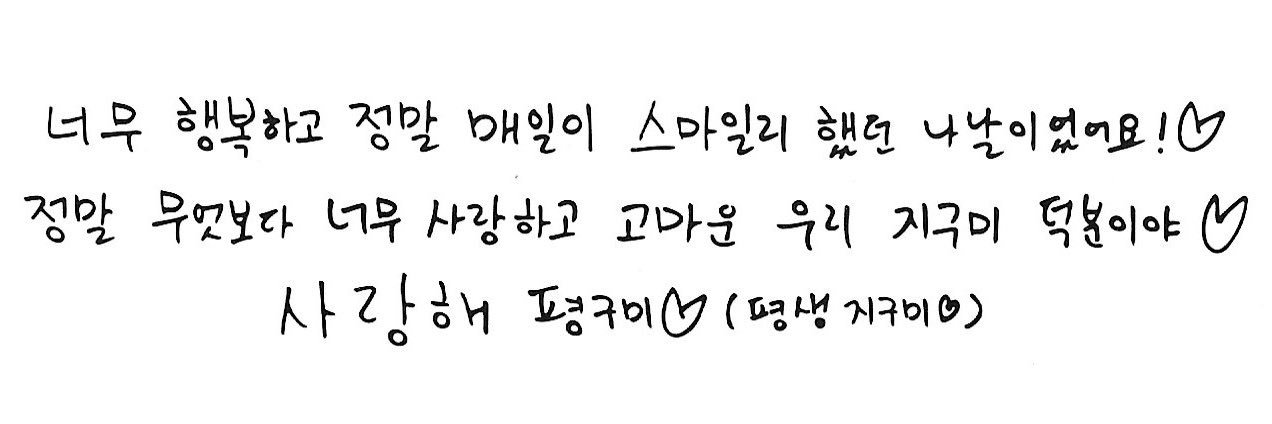 너무 행복하고 정말 매일이 스마일리 했던 나날이었어요!♡
정말 무엇보다 너무 사랑하고 고마운 우리 지구미 덕분이야♡
사랑해 평구미♡(평생 지구미♡)